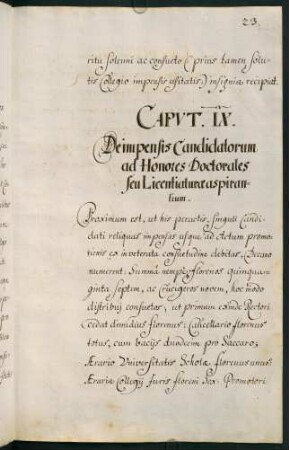 23
ritu solemi ac consueto (: prius tamen solu-
tis Collegio impensis usitatis :) insignia recipiat.
CAPVT. IX.
De impensis Candidatorum
ad Honores Doctorales
seu Licentiaturæ aspiran-
tium.
Proximum est, ut his peractis, singuli Candi-
dati reliquas impensas usque ad Actum promo-
tionis ex inveterata consuetudine debitas, Decano
numerent. Summa nempe florenos quinqua-
ginta septem, ac Crucigeros novem, hoc modo
distribui consuetos, ut primum exinde Rectori
cedat dimidius florenus; Cancellario florenus
totus, cum bacijs duodecim pro Saccaro;
Ærario Vniversitatis Scholæ florenus unus;
Ærario Collegij Juris floreni sex. Promotori